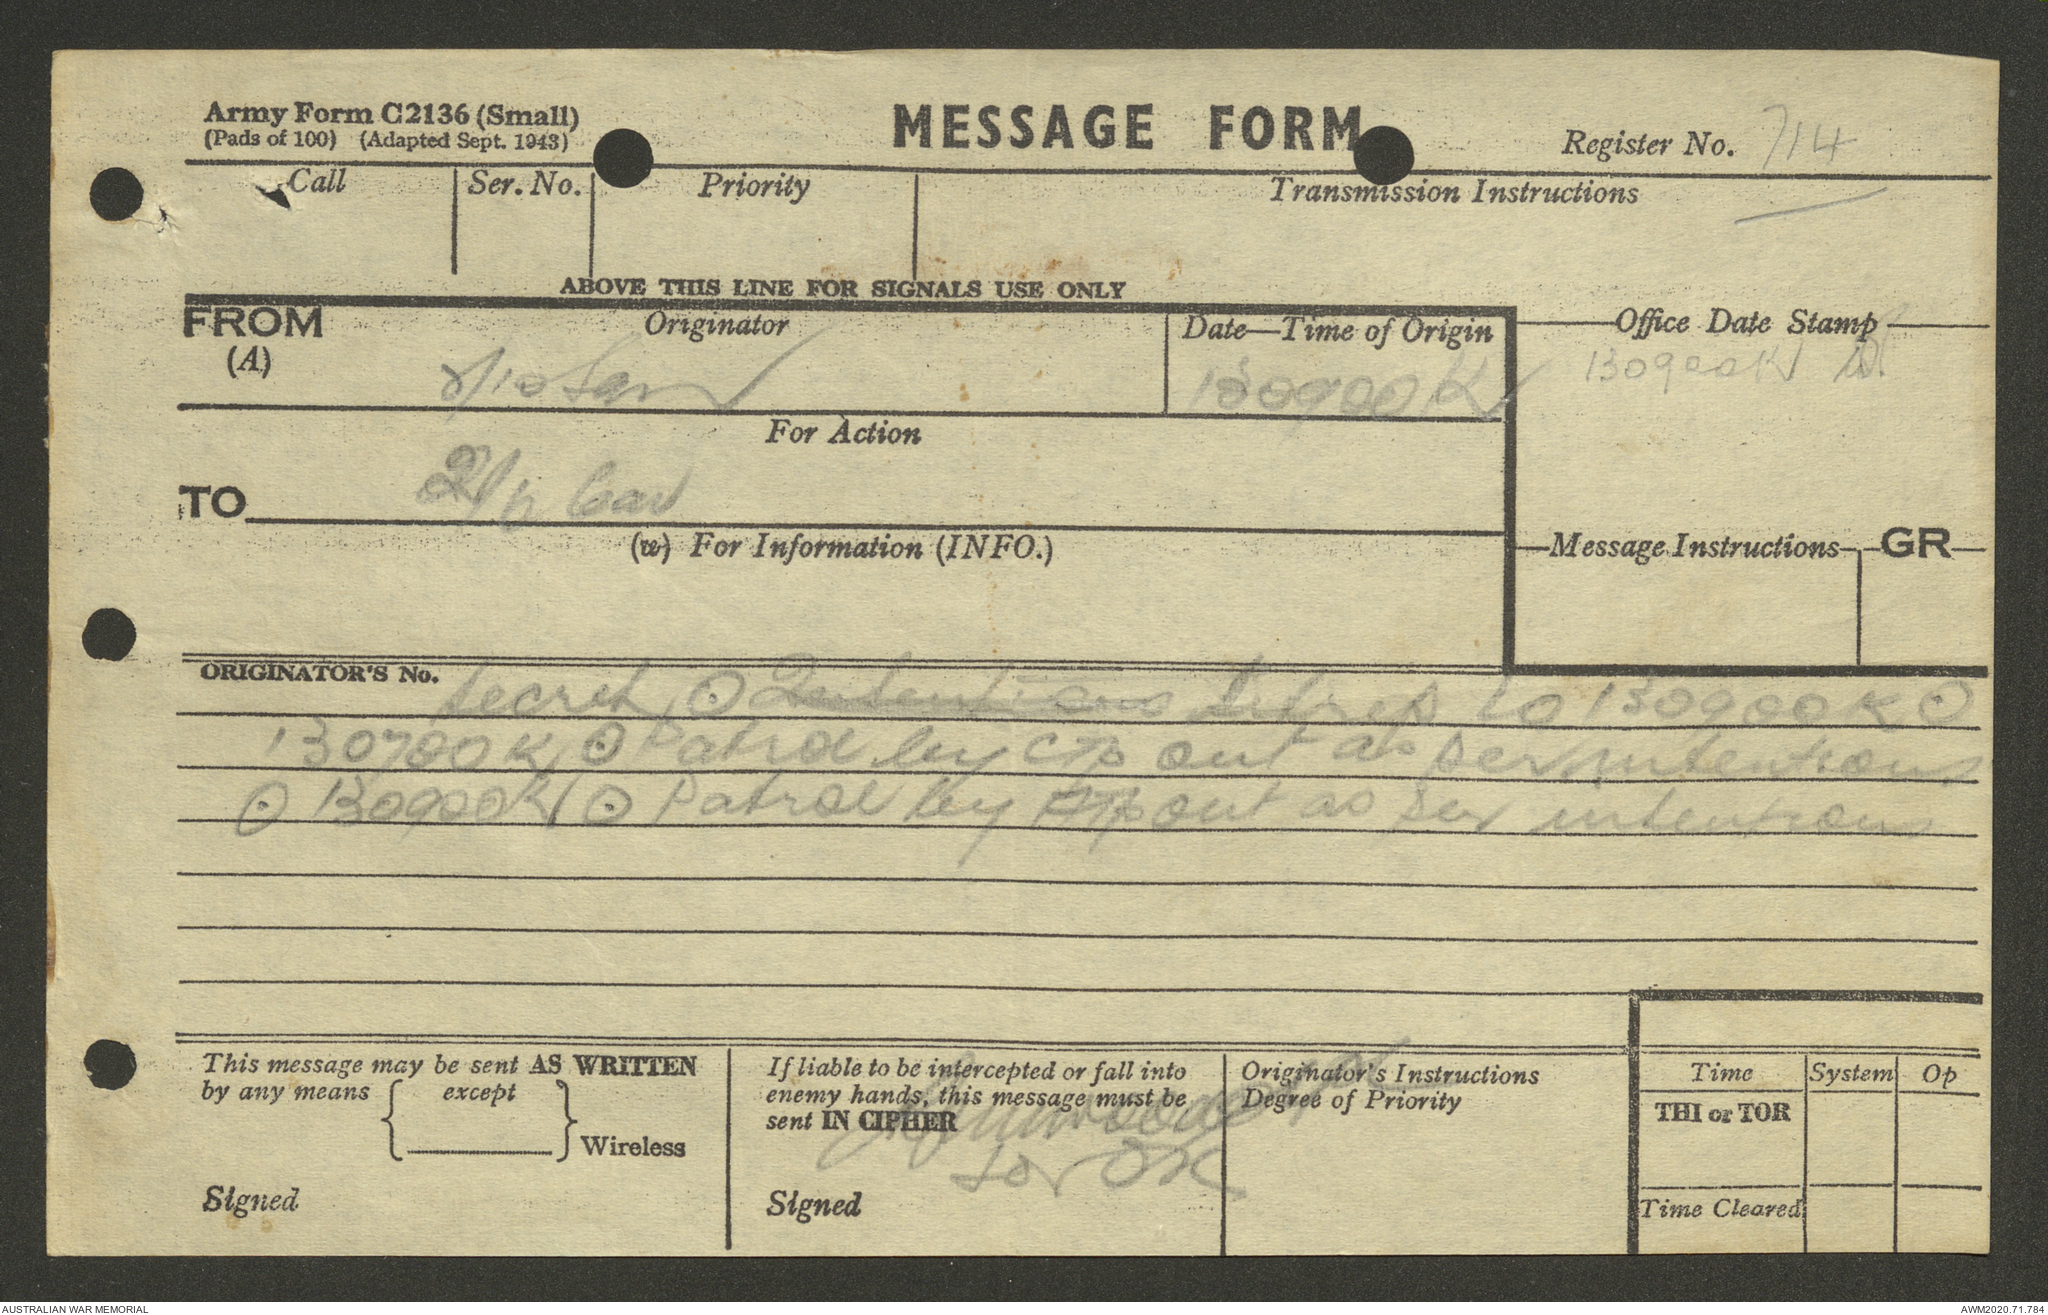 Army Form C2136 (Small)
(Pads of 100) (Adapted Sept. 1943)
MESSAGE FORM
Register No. 714
Call
Ser. No.
Priority
Transmission Instructions
ABOVE THIS LINE FOR SIGNALS USE ONLY
FROM
(A)
Originator
Date—Time of Origin
130900K
Office Date Stamp
130900K
For Action
TO
(w) For Information (INFO.)
Message Instructions
GR
ORIGINATOR'S No.
Secret ⊙ Intentions Sitrep to 130900K ⊙
130700K ⊙ Patrol by out as per intentions
⊙ 130900K ⊙ Patrol by out as per intentions
This message may be sent AS WRITTEN
by any means { except } Wireless
Signed
If liable to be intercepted or fall into
enemy hands, this message must be
sent IN CIPHER
Signed
Originator's Instructions
Degree of Priority
Time
System
Op
THI or TOR
Time Cleared
AUSTRALIAN WAR MEMORIAL
AWM2020.71.784